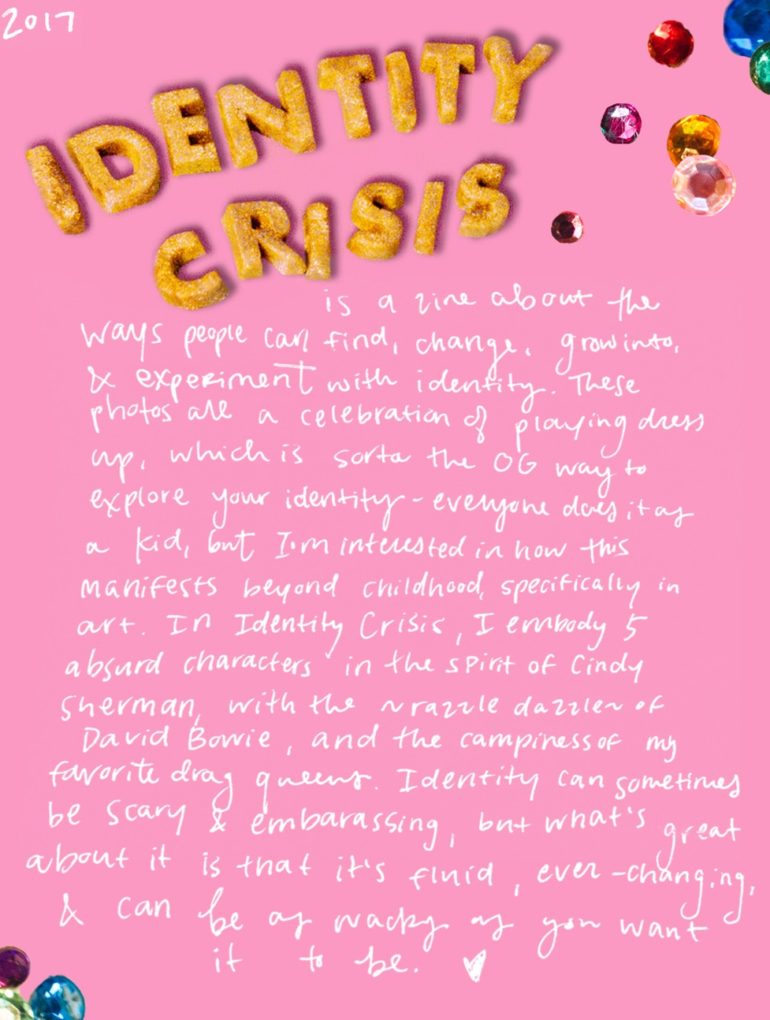 2017
IDENTITY
CRISIS
is a zine about the
ways people can find, change, grow into,
& experiment with identity. These
photos are a celebration of playing dress
up, which is sorta the OG way to
explore your identity - everyone does it as
a kid, but I'm interested in how this
manifests beyond childhood, specifically in
art. In Identity Crisis, I embody 5
absurd characters in the spirit of Cindy
Sherman, with the ~razzle dazzle~ of
David Bowie, and the campiness of my
favorite drag queens. Identity can sometimes
be scary & embarassing, but what's great
about it is that it's fluid, ever-changing,
& can be as wacky as you want
it to be.